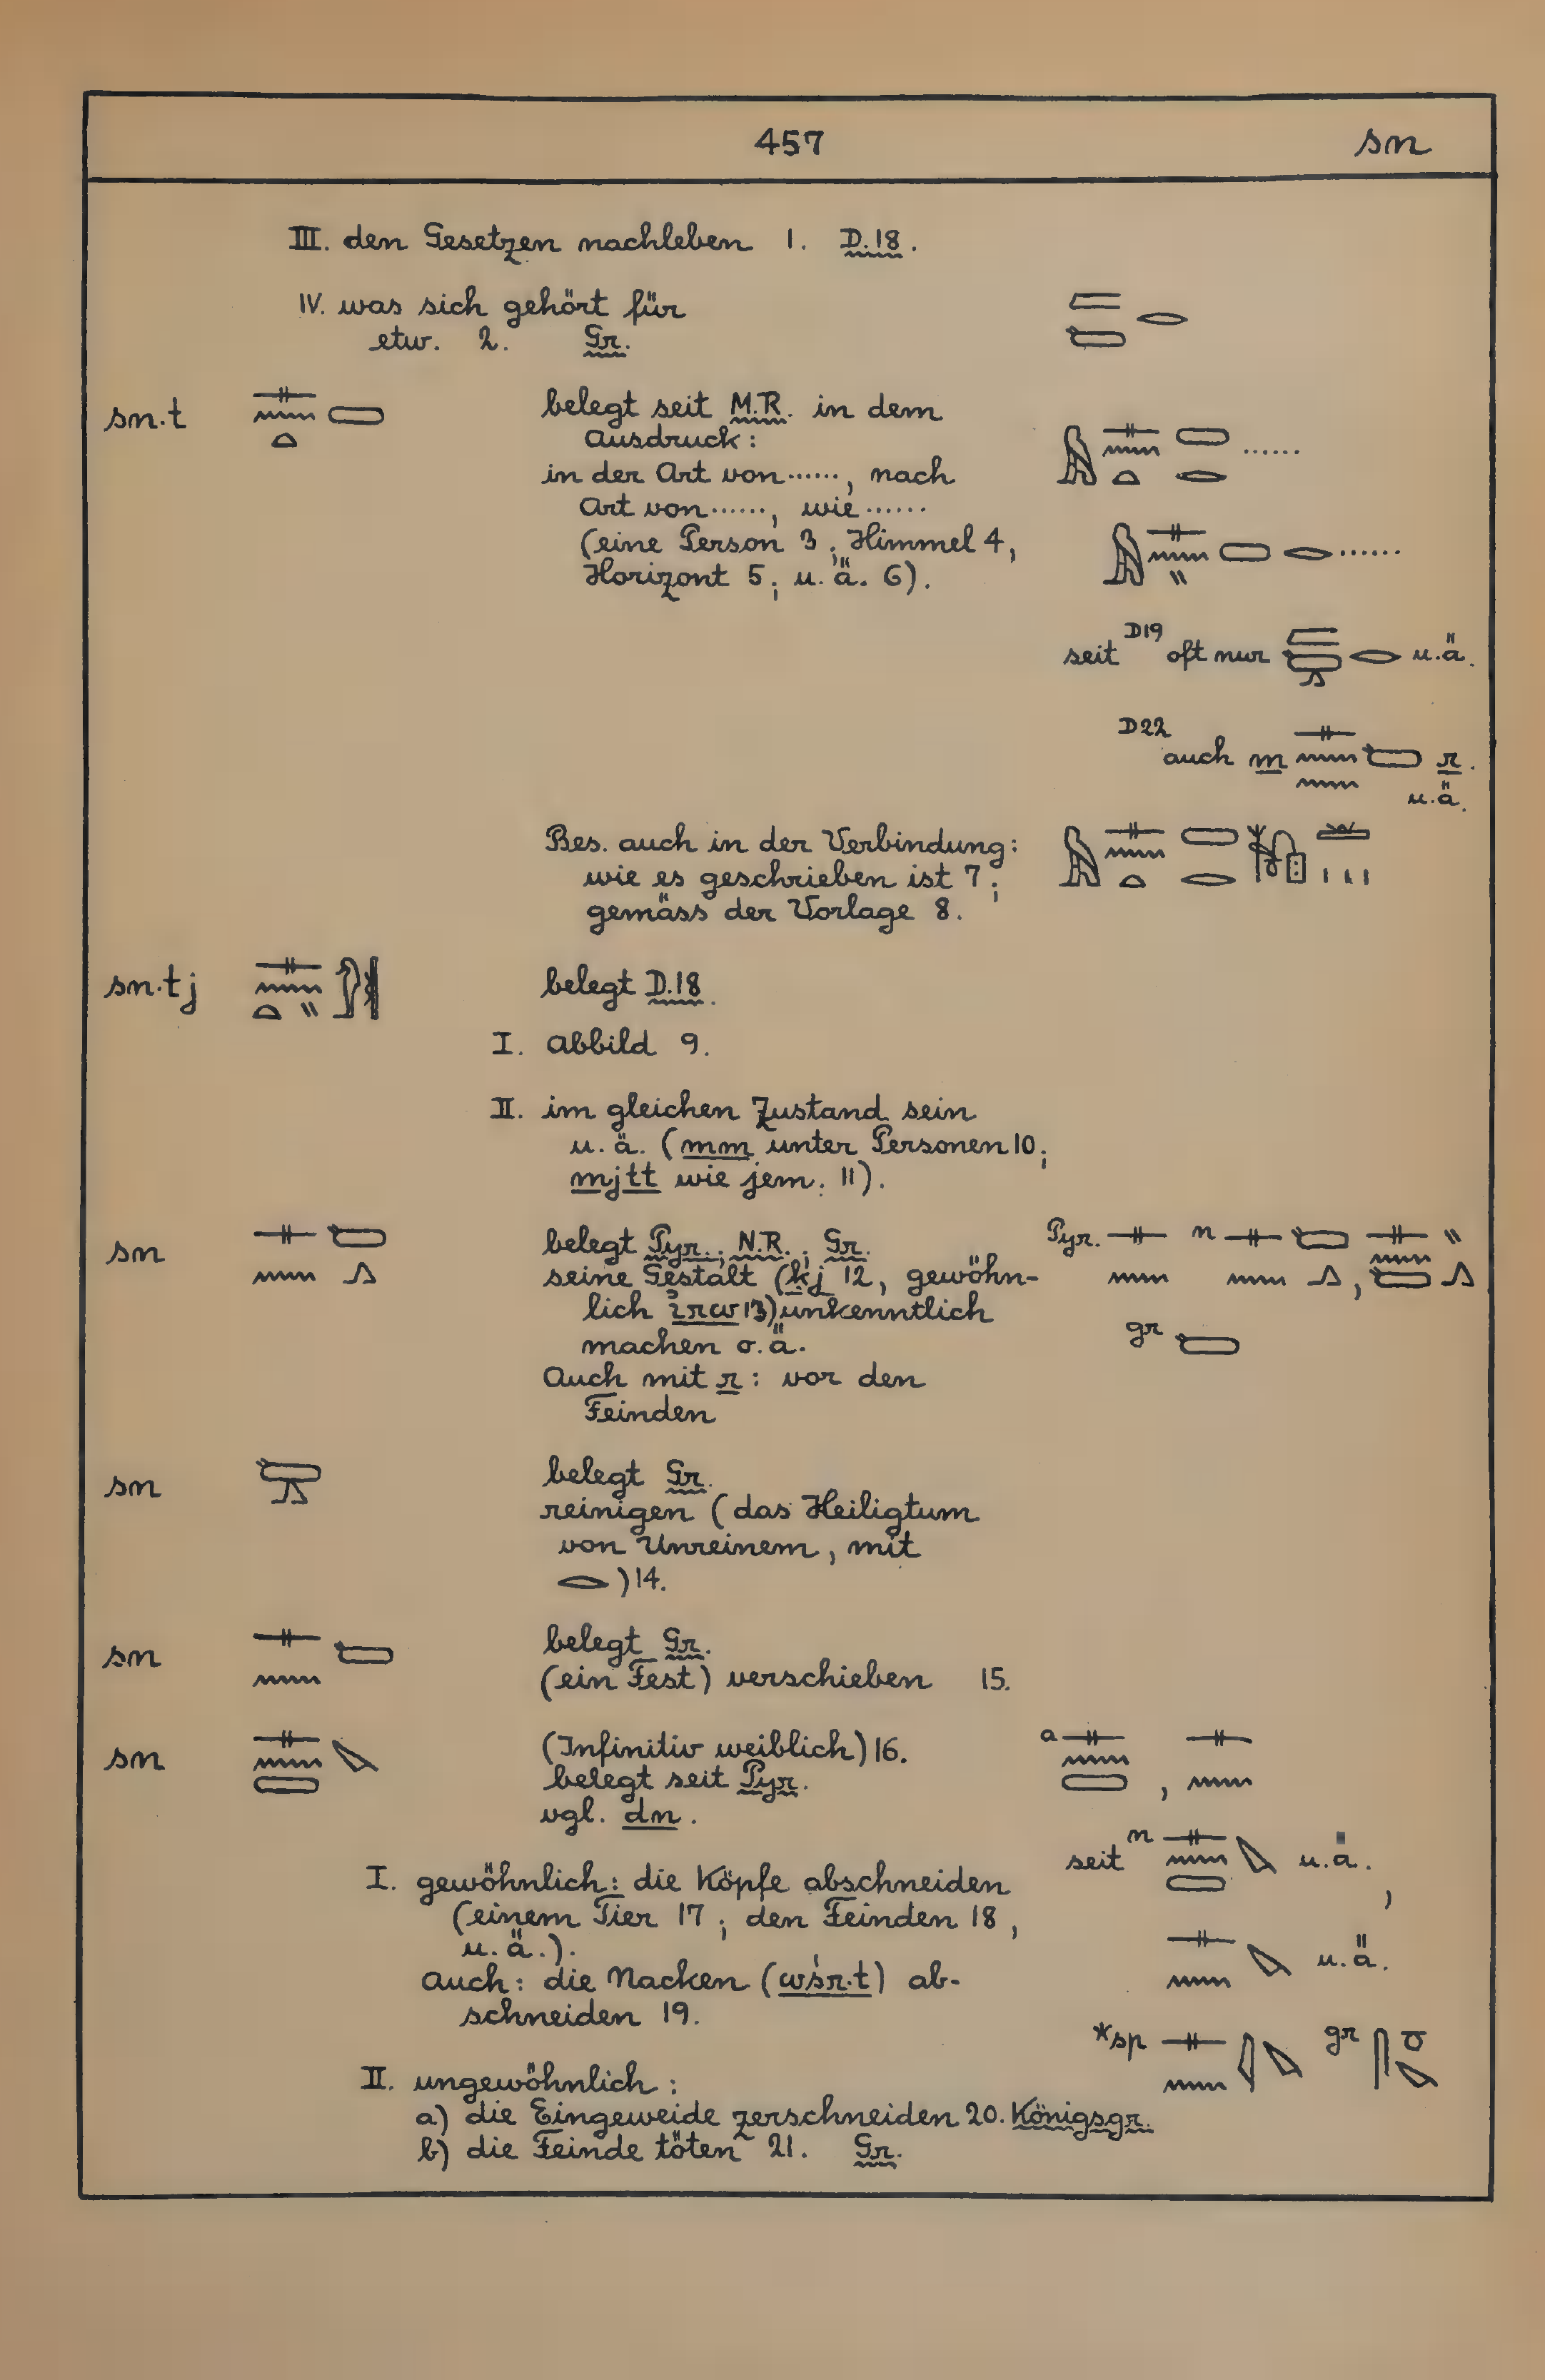 457 sn
III. den Gesetzen nachleben 1. D.18.
IV. was sich gehört für
etw. 2. Gr.
sn.t belegt seit M.R. in dem
Ausdruck:
in der Art von ......, nach
Art von ......, wie ......
(eine Person 3; Himmel 4,
Horizont 5; u.ä. 6).
seit D19 oft nur u.ä.
D22
auch m r.
u.ä.
Bes. auch in der Verbindung:
wie es geschrieben ist 7;
gemäss der Vorlage 8.
sn.tj belegt D.18.
I. Abbild 9.
II. im gleichen Zustand sein
u.ä. (mm unter Personen 10;
mjtt wie jem. 11).
sn belegt Pyr.; N.R.; Gr. Pyr. n
seine Gestalt (kj 12, gewöhn-
lich irw 13) unkenntlich
machen o.ä. gr
Auch mit r: vor den
Feinden
sn belegt Gr.
reinigen (das Heiligtum
von Unreinem, mit
) 14.
sn belegt Gr.
(ein Fest) verschieben 15.
sn (Infinitiv weiblich) 16. a ,
belegt seit Pyr.
vgl. dn.
seit n u.ä.,
I. gewöhnlich: die Köpfe abschneiden
(einem Tier 17; den Feinden 18,
u.ä.).
u.ä.
Auch: die Nacken (wśr.t) ab-
schneiden 19.
*sp gr
II. ungewöhnlich:
a) die Eingeweide zerschneiden 20. Königsgr.
b) die Feinde töten 21. Gr.